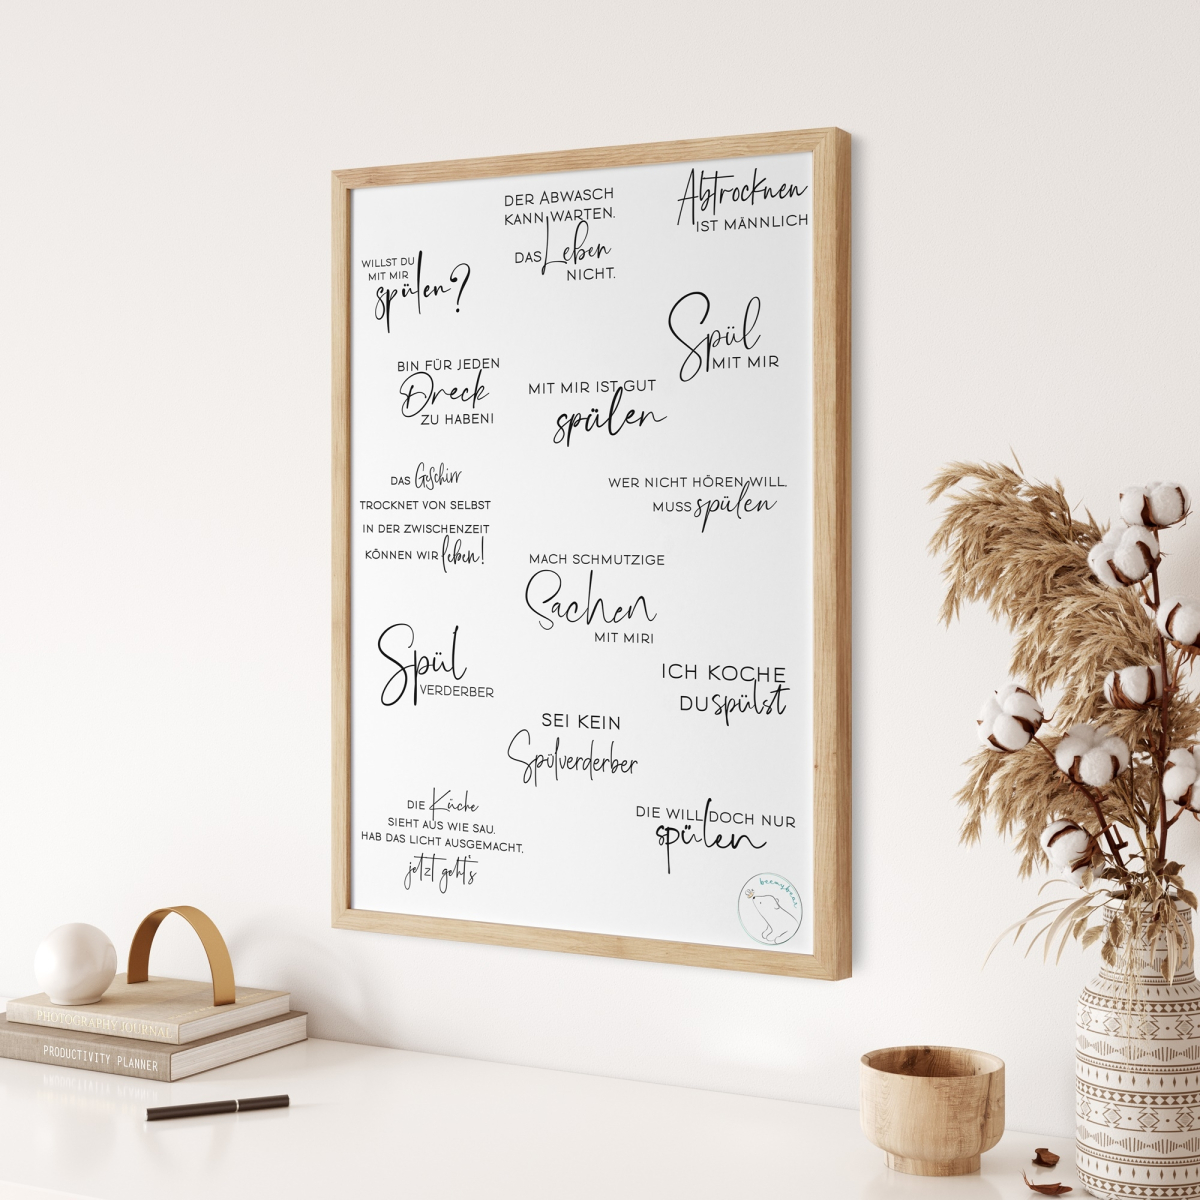 DER ABWASCH
KANN WARTEN.
DAS Leben
NICHT.
Abtrocknen
IST MÄNNLICH
WILLST DU
MIT MIR
spülen?
Spül
MIT MIR
BIN FÜR JEDEN
Dreck
ZU HABEN!
MIT MIR IST GUT
spülen
DAS Geschirr
TROCKNET VON SELBST
IN DER ZWISCHENZEIT
KÖNNEN WIR leben!
WER NICHT HÖREN WILL,
MUSS spülen
MACH SCHMUTZIGE
Sachen
MIT MIR!
Spül
VERDERBER
ICH KOCHE
DU spülst
SEI KEIN
Spülverderber
DIE Küche
SIEHT AUS WIE SAU.
HAB DAS LICHT AUSGEMACHT,
jetzt geht's
DIE WILL DOCH NUR
spülen
beemybear
PHOTOGRAPHY JOURNAL
PRODUCTIVITY PLANNER